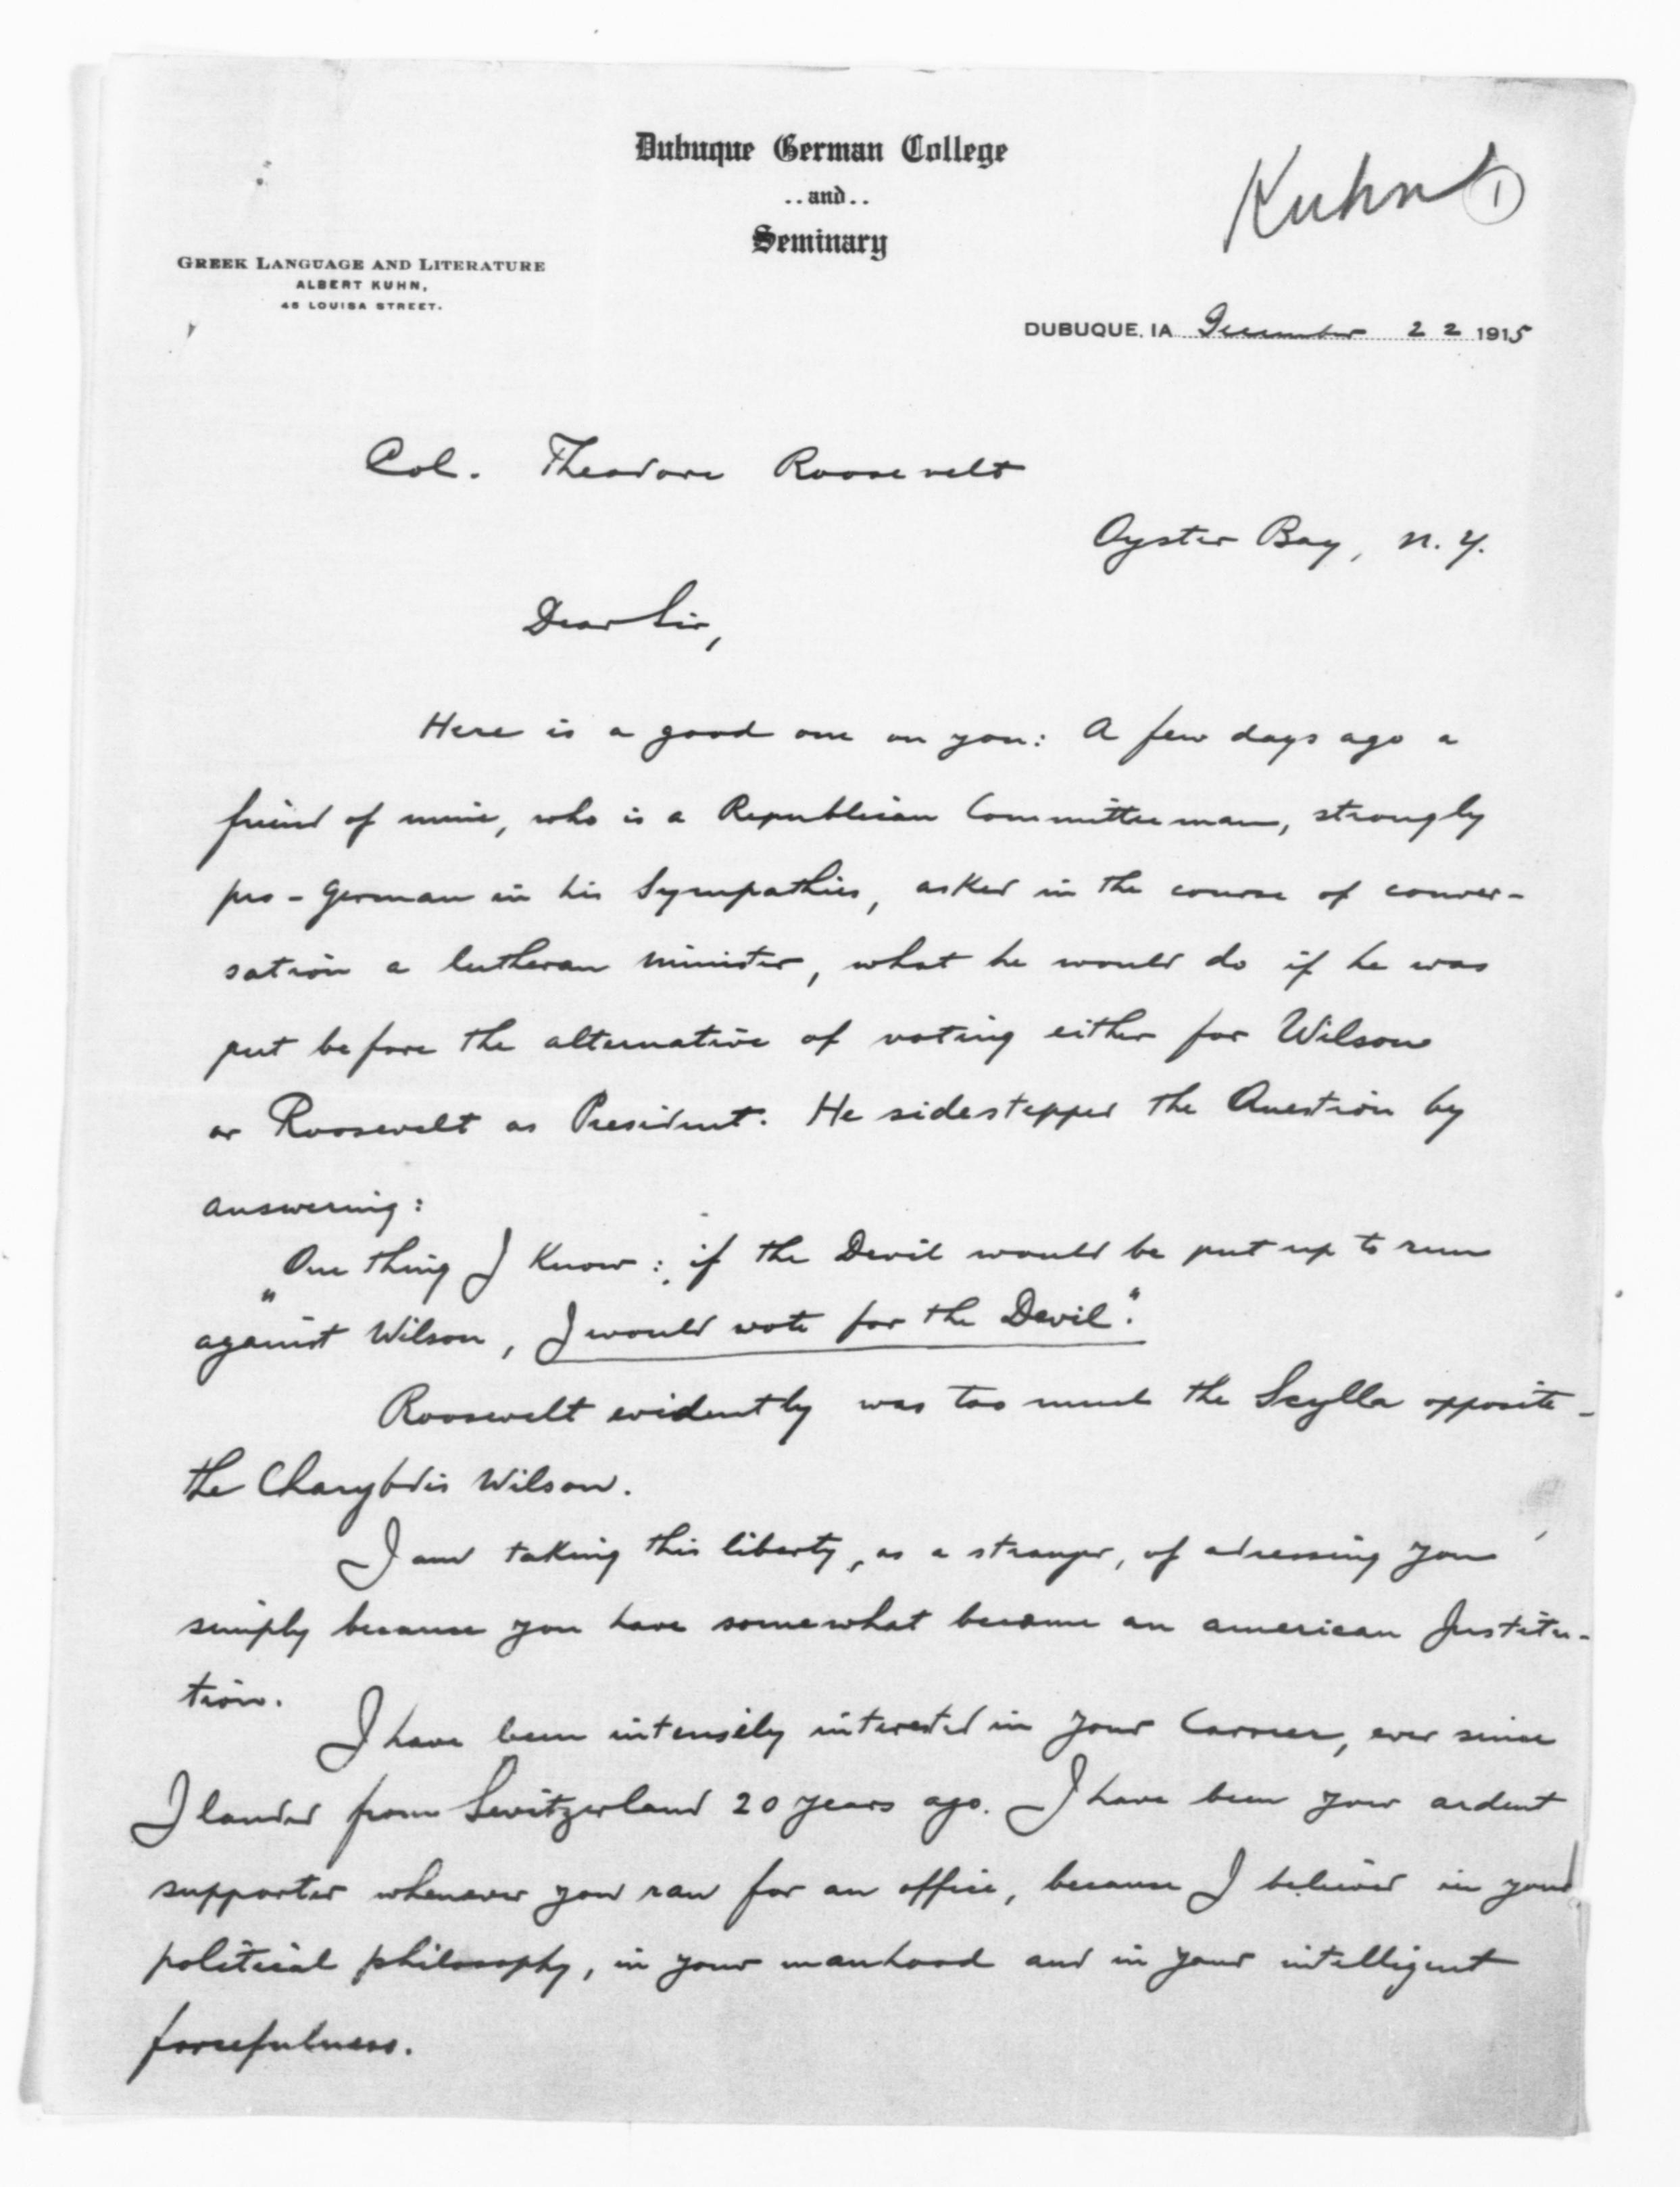 Dubuque German College
..and..
Seminary
Kuhn 1
GREEK LANGUAGE AND LITERATURE
ALBERT KUHN,
48 LOUISA STREET.
DUBUQUE, IA December 22 1915
Col. Theodore Roosevelt
Oyster Bay, N.Y.
Dear Sir,
Here is a good one on you: A few days ago a
friend of mine, who is a Republican Committeeman, strongly
pro-German in his Sympathies, asked in the course of conver-
sation a lutheran minister, what he would do if he was
put before the alternative of voting either for Wilson
or Roosevelt as President. He sidestepped the Question by
answering:
„One thing I know: if the Devil would be put up to run
against Wilson, I would vote for the Devil."
Roosevelt evidently was too much the Scylla opposite
the Charybdis Wilson.
I am taking this liberty, as a stranger, of adressing you
simply because you have somewhat become an american Institu-
tion.
I have been intensely interested in your Carreer, ever since
I landed from Switzerland 20 years ago. I have been your ardent
supporter whenever you ran for an office, because I believed in your
political philosophy, in your manhood and in your intelligent
forcefulness.